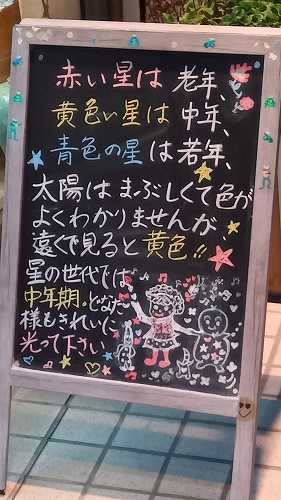 赤い星は老年、
黄色い星は中年、
青色の星は若年、
太陽はまぶしくて色が
よくわかりませんが、
遠くで見ると黄色!!
星の世代では
中年期。どなた
様もきれいに
光って下さい